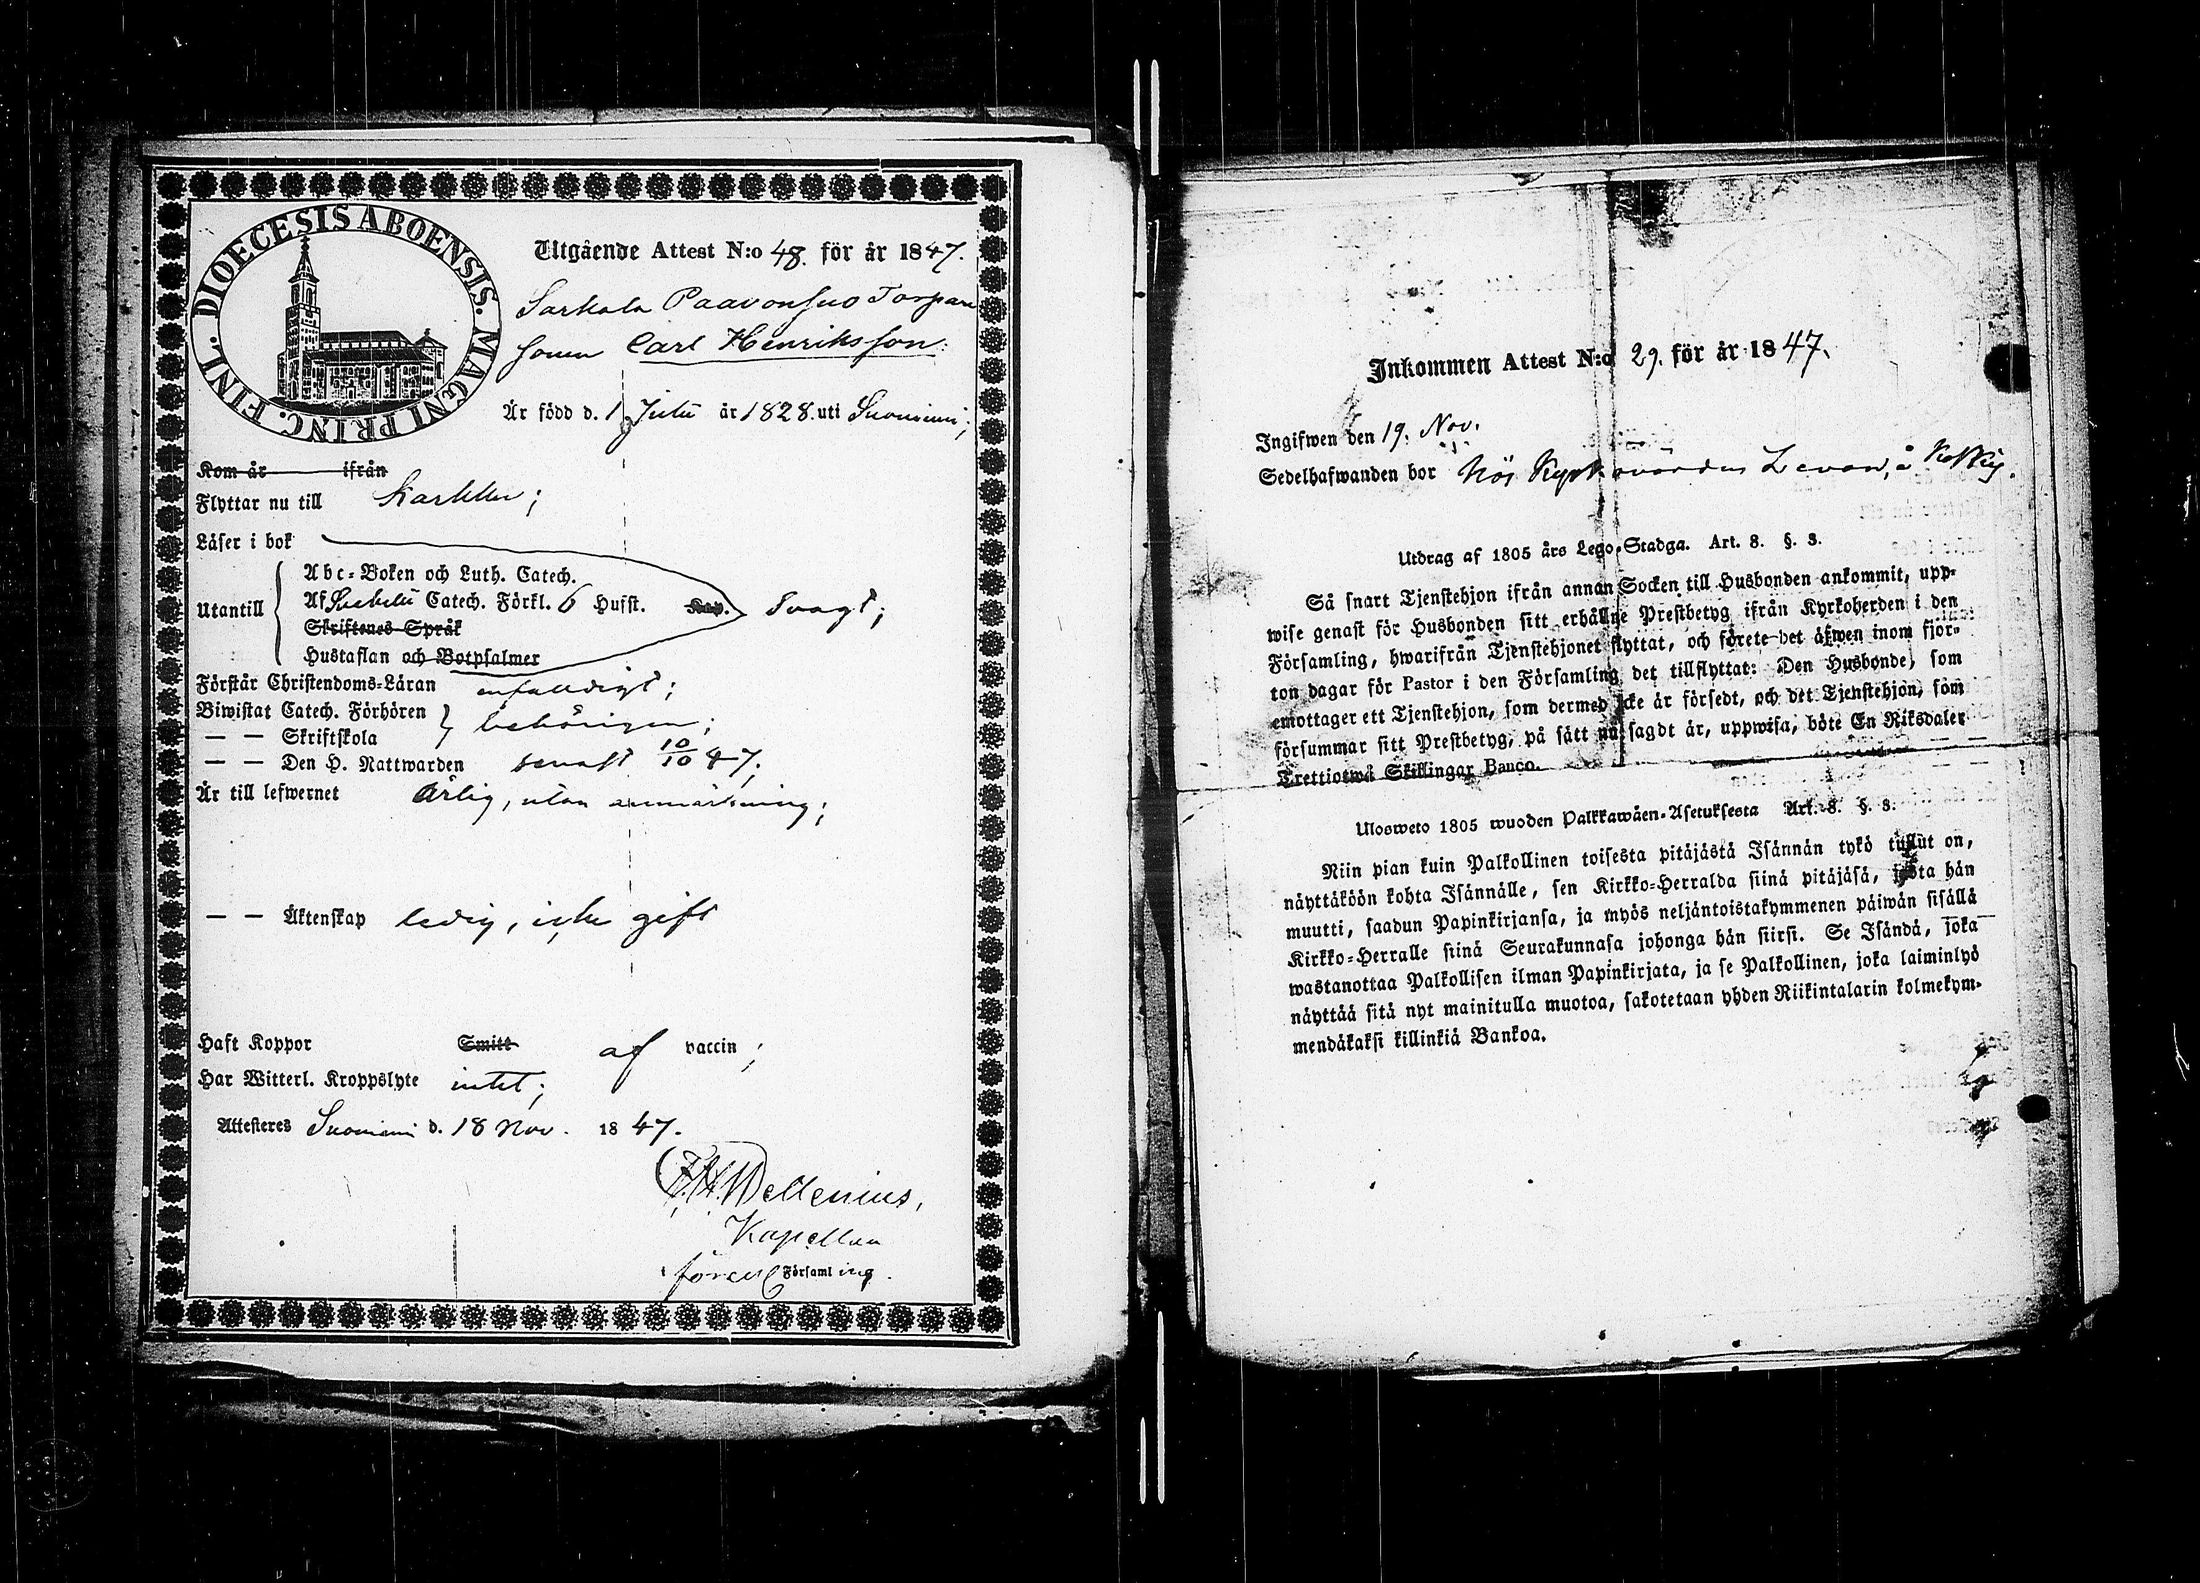 DIOECESIS ABOENSIS. MAGNI PRINC. FINL.
Utgående Attest N:o 48. för år 1847.
Sarkola Paavonsuo Torpare
sonen Carl Henriksson
Är född d. 1 Julii år 1828. uti Suoniemi;
Kom år ifrån
Flyttar nu till Karkku;
Läser i bok
Utantill
Abc-Boken och Luth. Catech.
Af Svebelii Catech. Förkl. 6 Hufst. Kap. Svagt;
Skriftenes Språk
Hustaflan och Botpsalmer
Förstår Christendoms-Läran enfaldigt;
Biwistat Catech. Förhören
— — Skriftskola
behörigen;
— — Den H. Nattwarden senast 10/10 47;
Är till lefwernet Ärlig, utan anmärkning;
— — Äktenskap ledig, icke gift
Haft Koppor Smitt af vaccin;
Har Witterl. Kroppslyte intet;
Attesteres Suoniemi d. 18 Nov. 1847.
Kapellan
Församling.
Inkommen Attest N:o 29. för år 1847.
Ingifwen den 19. Nov.
Sedelhafwanden bor hos Kyrkovärden
Utdrag af 1805 års Lego-Stadga. Art. 8. §. 3.
Så snart Tjenstehjon ifrån annan Socken till Husbonden ankommit, upp-
wise genast för Husbonden sitt erhållne Prestbetyg ifrån Kyrkoherden i den
Församling, hwarifrån Tjenstehjonet flyttat, och förete det äfwen inom fjor-
ton dagar för Pastor i den Församling det tillflyttat: Den Husbonde, som
emottager ett Tjenstehjon, som dermed icke är försedt, och det Tjenstehjon, som
försummar sitt Prestbetyg, på sätt nu sagdt är, uppwisa, böte En Riksdaler
Trettiotwå Skillingar Banco.
Ulosweto 1805 wuoden Palkkawäen-Asetuksesta Art. 8. §. 3.
Niin pian kuin Palkollinen toisesta pitäjästä Isännän tykö tullut on,
näyttäköön kohta Isännälle, sen Kirkko-Herralda siinä pitäjäsä, josta hän
muutti, saadun Papinkirjansa, ja myös neljäntoistakymmenen päiwän sisällä
Kirkko-Herralle siinä Seurakunnasa johonga hän siirsi. Se Isändä, joka
wastanottaa Palkollisen ilman Papinkirjata, ja se Palkollinen, joka laiminlyö
näyttää sitä nyt mainitulla muotoa, sakotetaan yhden Riikintalarin kolmekym-
mendäkaksi killinkiä Bankoa.